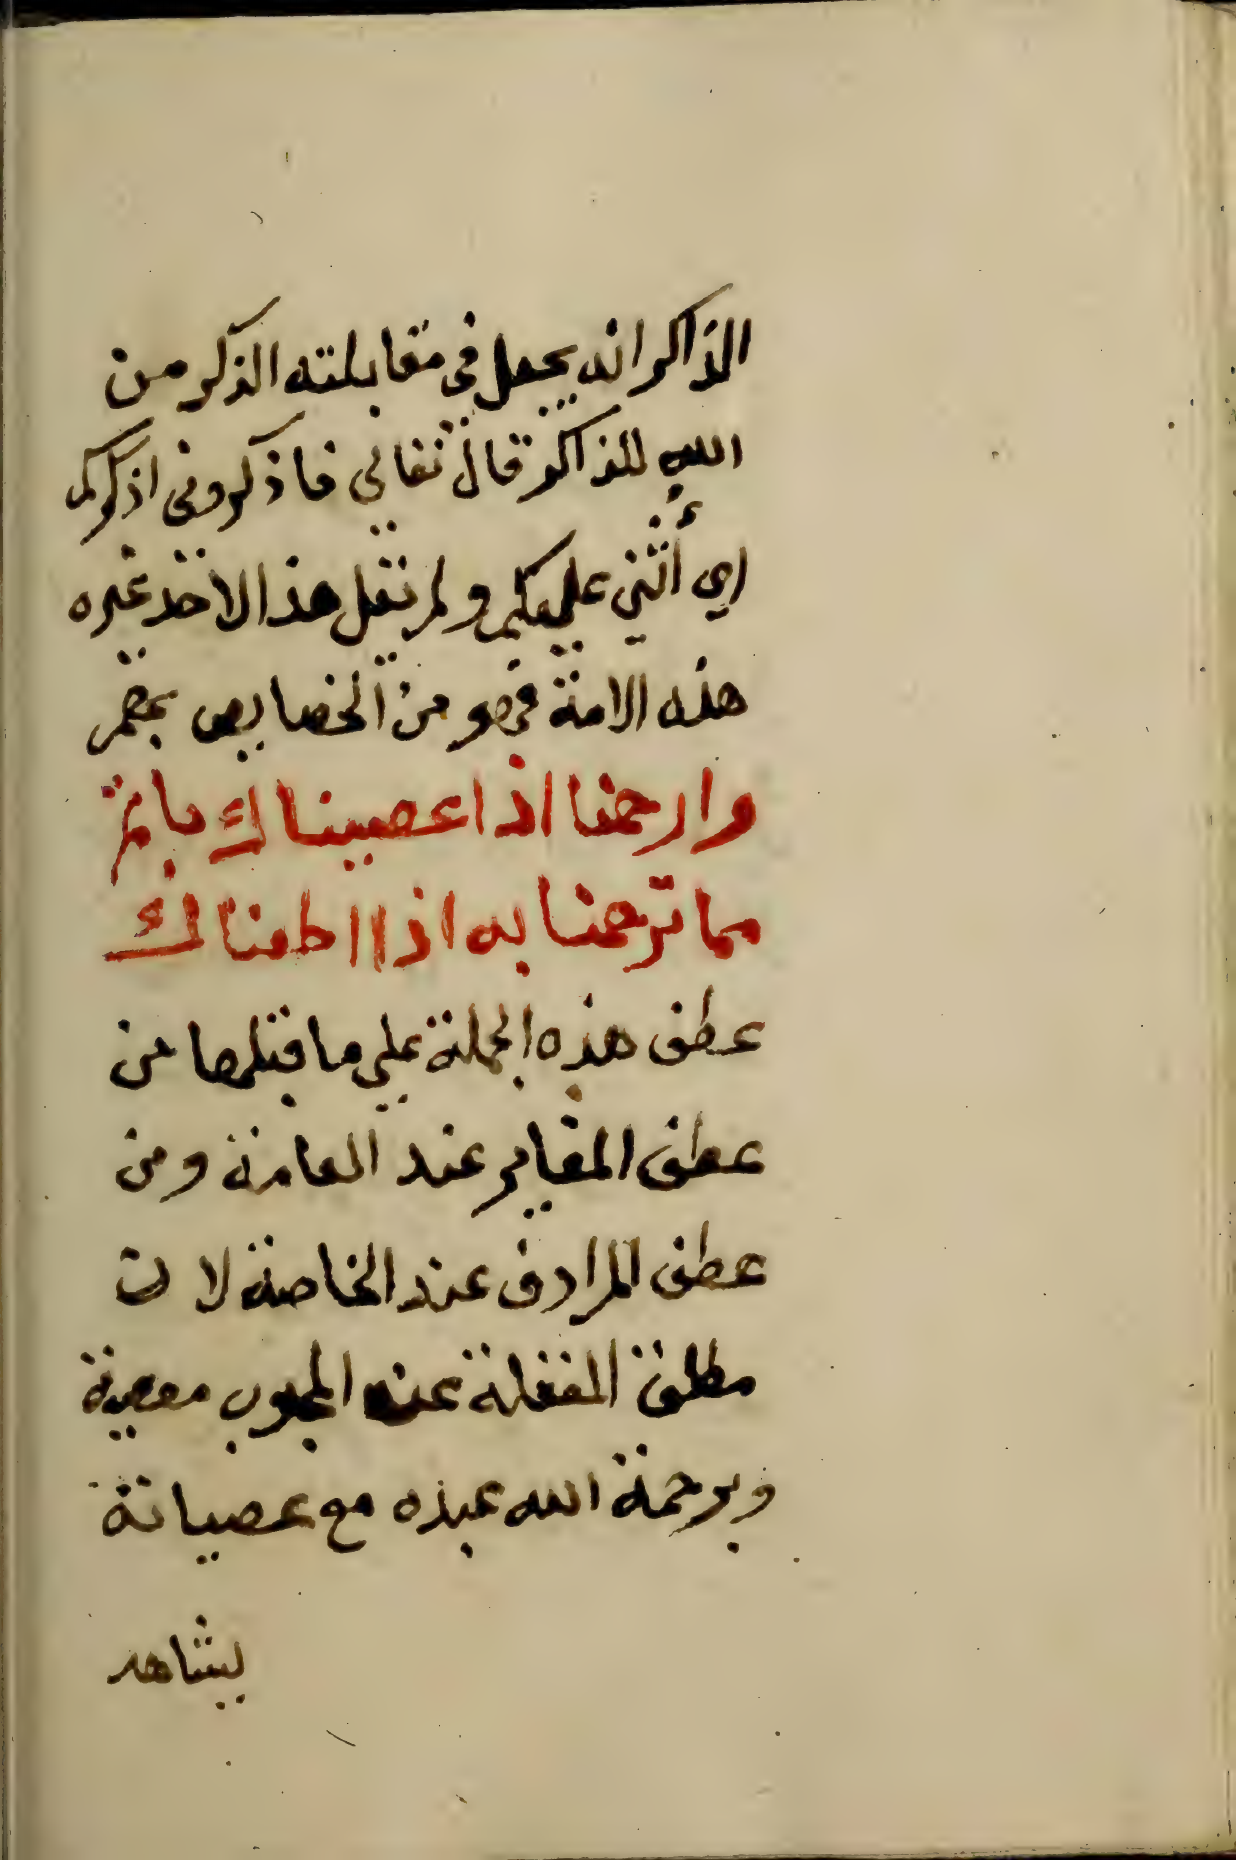 الذاكر انه يجعل في مقابلته الذكر من
الله للذاكر قال تعالي فاذكروني اذكركم
اي أثني عليكم ولم نقل هذا لاحد غيره
هذه الامة فهو من الخصايص بهم
وارحمنا اذا عصيناك باتم
مما ترحمنا به اذا اطعناك
عطف هذه الجملة علي ما قبلها من
عطف المغاير عند العامة ومن
عطف المرادف عند الخاصة لان
مطلق الغفلة عنه المحبوب معصية
وبرحمة الله عبده مع عصيانة
يشاهد